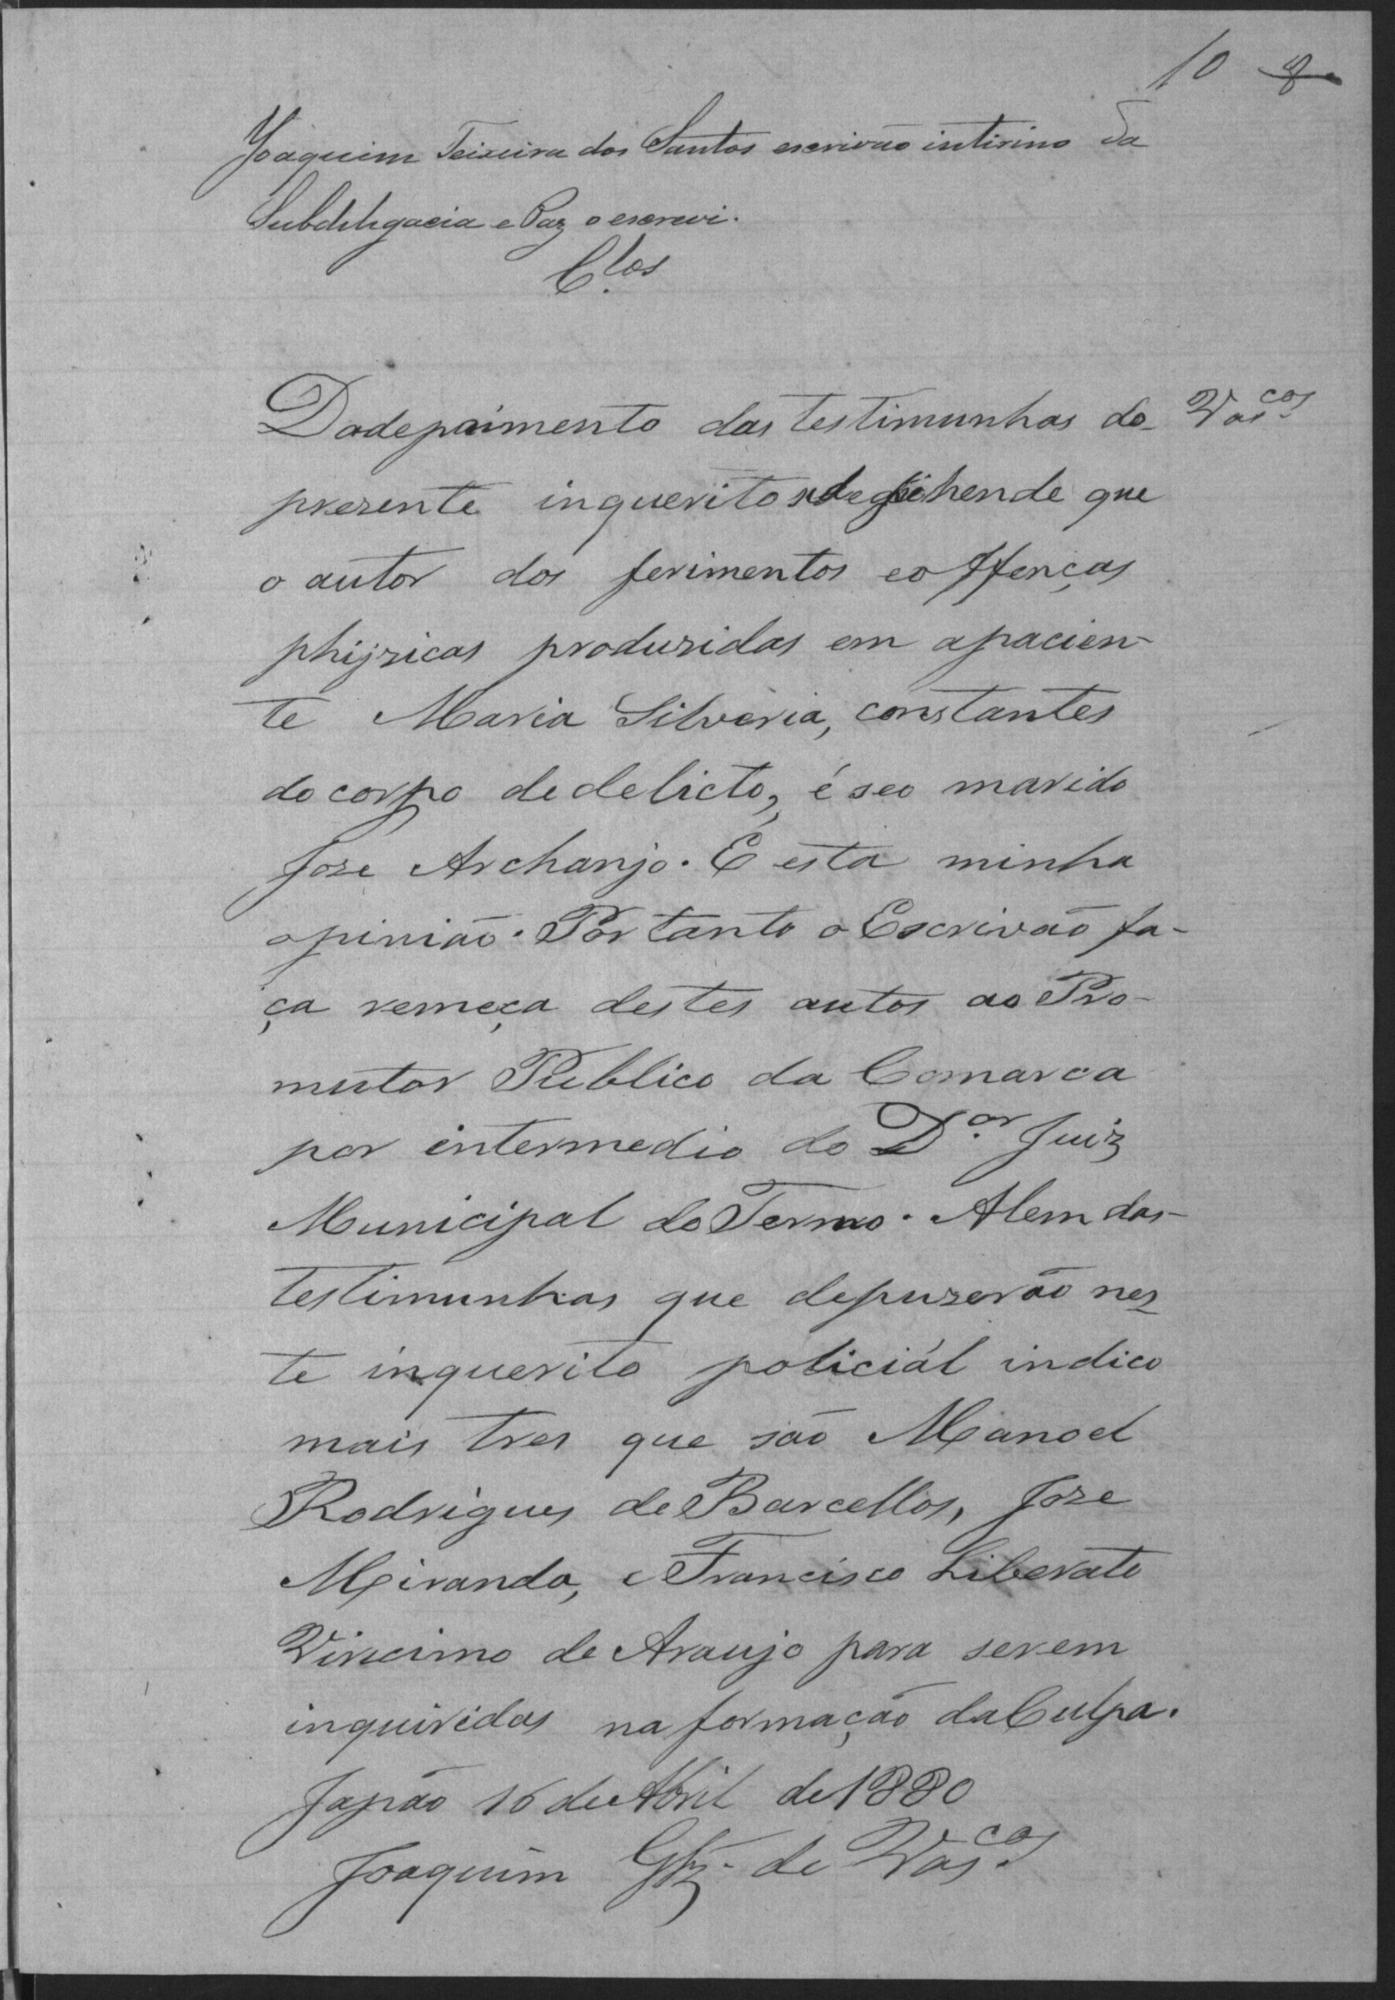 10 8
Joaquim Teixeira dos Santos escrivão intirino da
Subdelegacia e Paz o escrevi.
C.los
Do depoimento das testimunhas do Vas.cos
prezente inquerito se deprihende que
o autor dos ferimentos e offenças
phijzicas produzidas em a pacien-
te Maria Silveria, constantes
do corpo de delicto, é seo marido
Joze Archanjo. É esta minha
opinião. Portanto o Escrivão fa-
ça remeça destes autos ao Pro-
mutor Publico da Comarca
por intermedio do D.or Juiz
Municipal do Termo. Alem das
testimunhas que depuzerão nes-
te inquerito policiál indico
mais tres que são Manoel
Rodrigues de Barcellos, Joze
Miranda, e Francisco Liberato
de Araujo para serem
inquiridas na formação da Culpa.
Japão 16 de Abril de 1880
Joaquim Glz. de Vas.cos